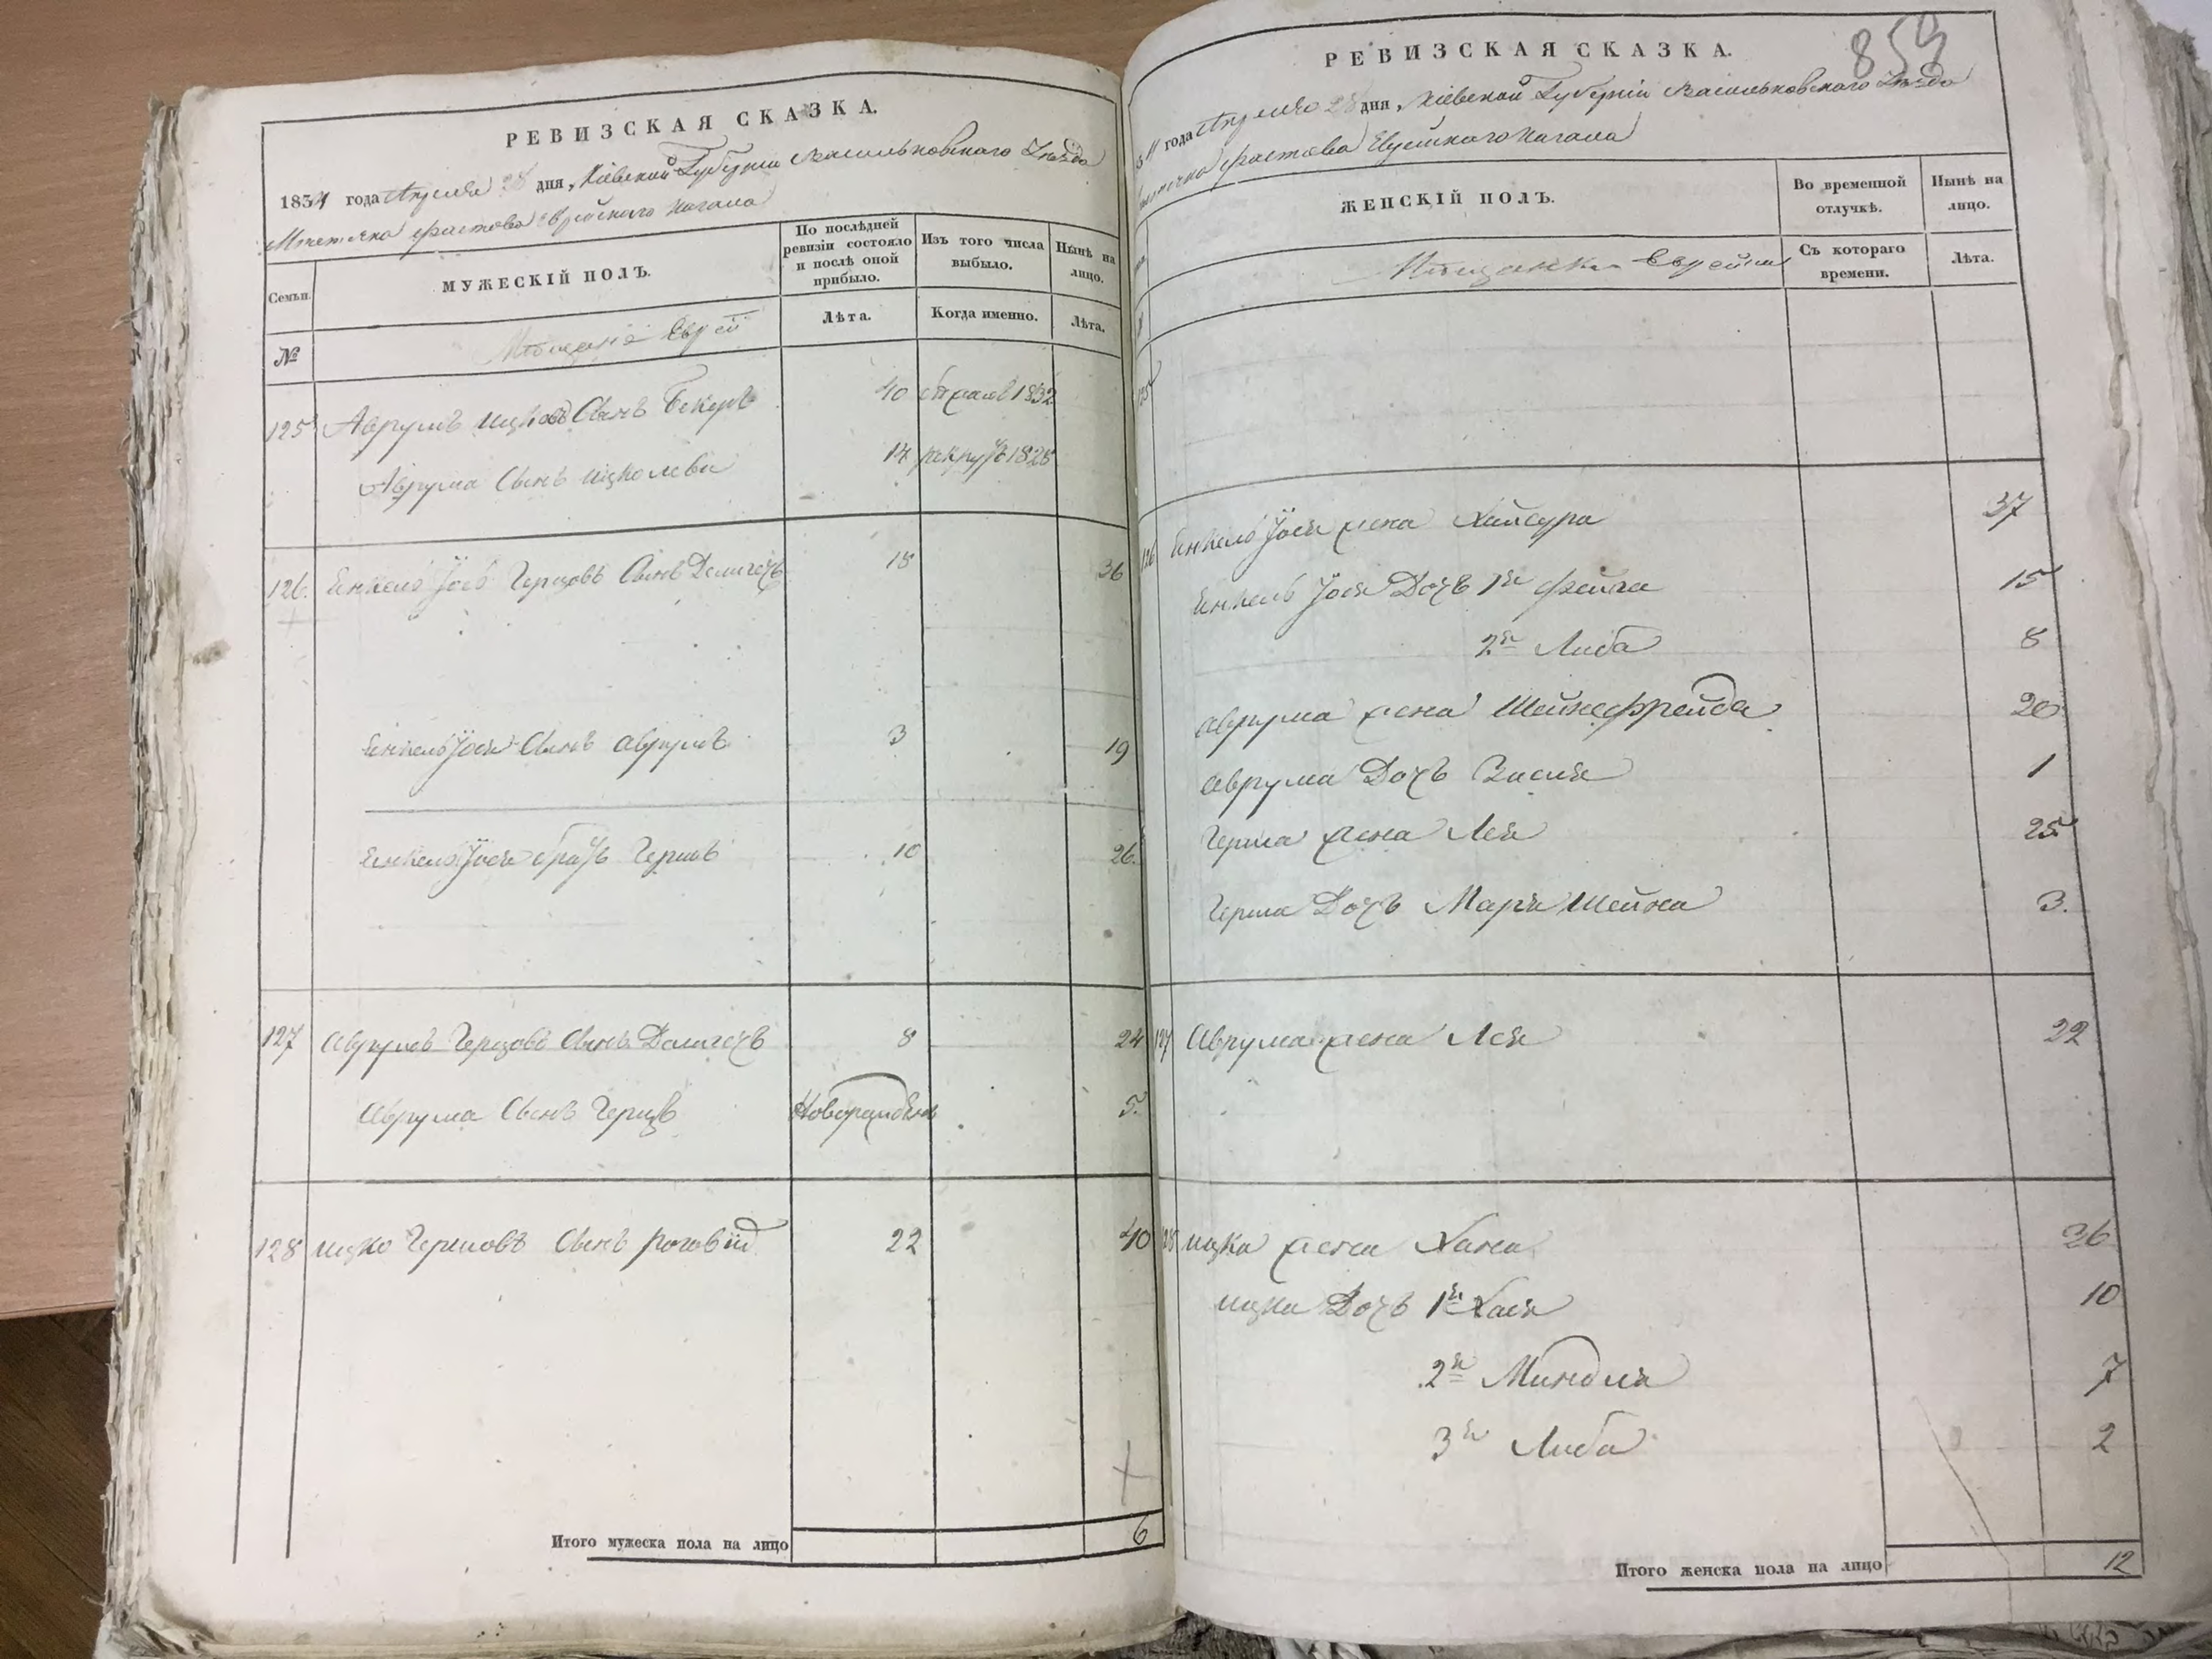 РЕВИЗСКАЯ СКАЗКА.
1834 года Апреля 28 дня, Кіевской Губерніи Васильковскаго Уѣзда
Мѣстечка Фастова Еврейскаго Кагала
Семьи.
МУЖЕСКІЙ ПОЛЪ.
По послѣдней ревизіи состояло и послѣ оной прибыло.
Изъ того числа выбыло.
Нынѣ на лицо.
№
Мѣщане Евреи
Лѣта.
Когда именно.
Лѣта.
125 Аврумъ Ицковъ Сынъ Бекеръ 40 1832
Аврума Сынъ Ицко Леви 14 рекрутъ 1828
126. Енкель Іось Герцовъ Сынъ 18 36
Енкель Іося Сынъ Аврумъ 3 19
Енкель Іося братъ Гершъ 10 26.
127 Аврумъ Герцовъ Сынъ 8 24
Аврума Сынъ Герцъ Новорожденъ 5.
128 Ицко Гершовъ Сынъ Роговій 22 40
Итого мужеска пола на лицо 6
859
РЕВИЗСКАЯ СКАЗКА.
34 года Апреля 28 дня, Кіевской Губерніи Васильковскаго Уѣзда
Мѣстечка Фастова Еврейскаго Кагала
ЖЕНСКІЙ ПОЛЪ.
Во временной отлучкѣ.
Нынѣ на лицо.
Мѣщанки Еврейки
Съ котораго времени.
Лѣта.
125
126 Енкель Іося жена Хайсура 37
Енкель Іося Дочь 1я Фейга 15
2я Либа 8
Аврума жена Шейнефрейда 20
Аврума Дочь Зисля 1
Герша жена Лея 25
Герша Дочь Маря Шейна 3.
127 Аврума жена Лея 22
128 Ицка жена Хана 36
Ицка Дочь 1я Хася 10
2я Миндля 7
3я Либа 2
Итого женска пола на лицо 12